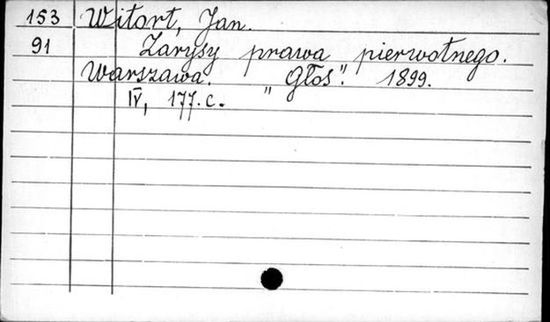 153 Witort, Jan.
91 Zarysy prawa pierwotnego.
Warszawa. "Głos". 1899.
IV, 177.c.